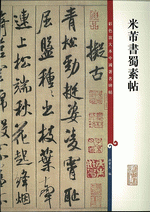 彩色放大本中國著名碑帖
米芾書蜀素帖
擬古
青松勁挺姿凌霄恥
屈盤種種出枝葉牽
連上松端秋花起絳